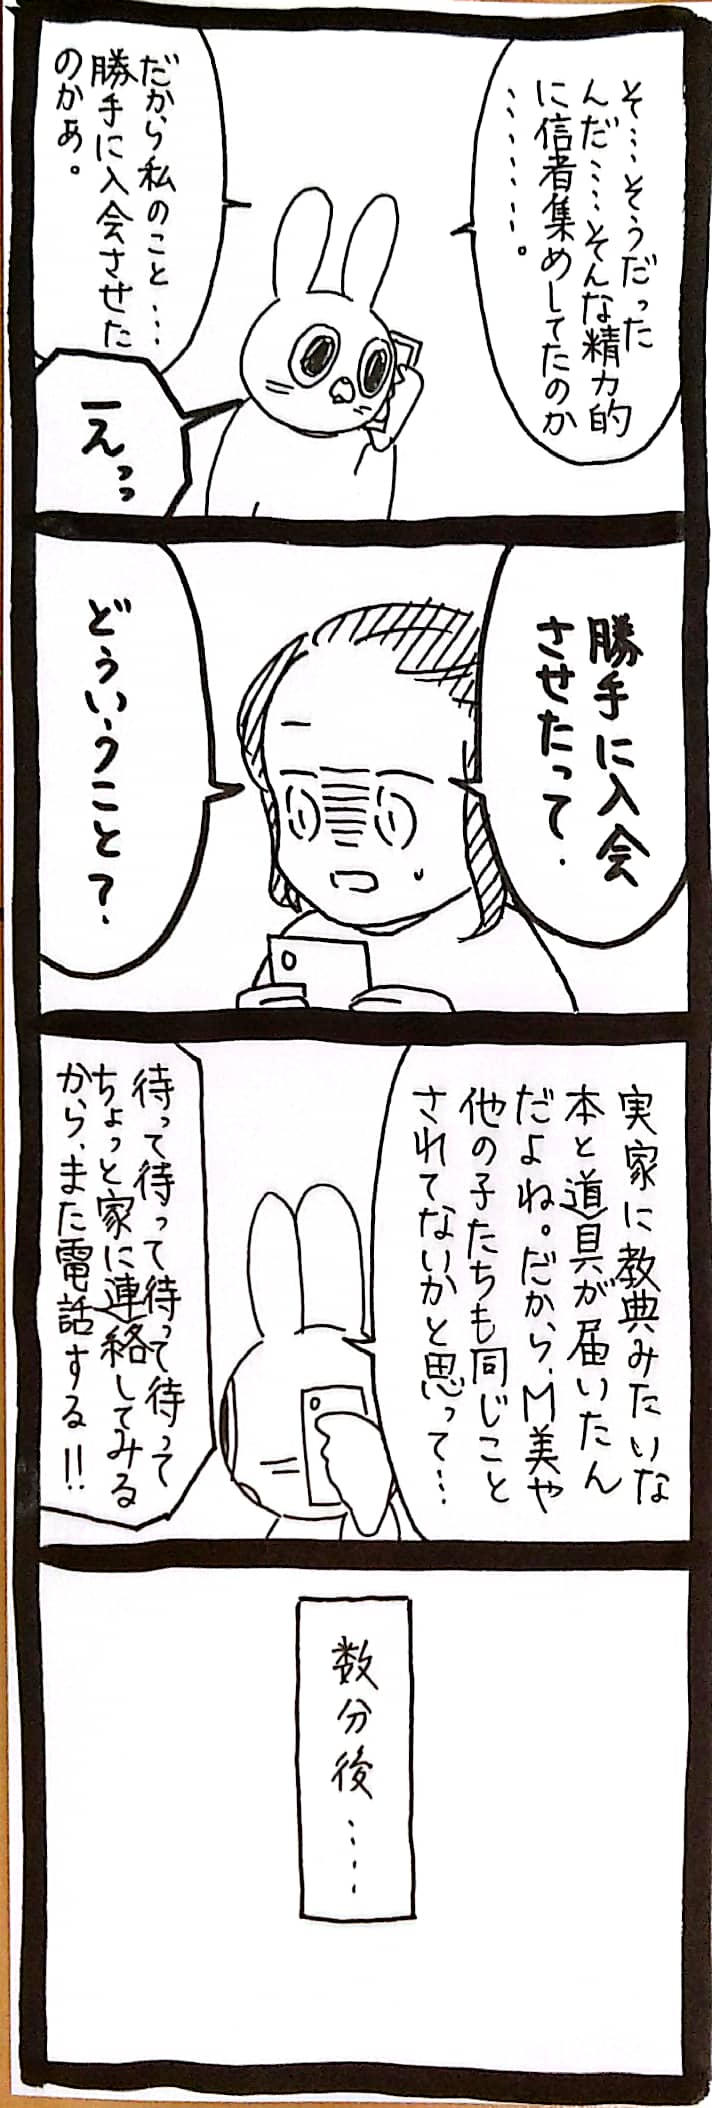 そ…そうだった
んだ……そんな精力的
に信者集めしてたのか
………。
だから私のこと…
勝手に入会させた
のかぁ。
えっっ
勝手に入会
させたって.
どういうこと？
実家に教典みたいな
本と道具が届いたん
だよね。だから、M美や
他の子たちも同じこと
されてないかと思って…
待って待って待って待って
ちょっと家に連絡してみる
から、また電話する!!
数分後……